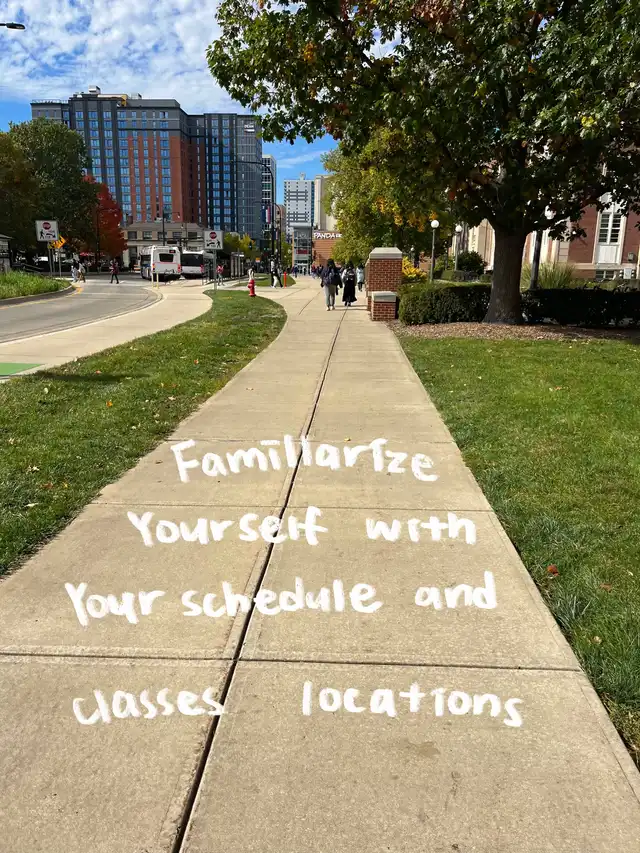 PANDA
Familiarize
Yourself with
Your schedule and
classes locations